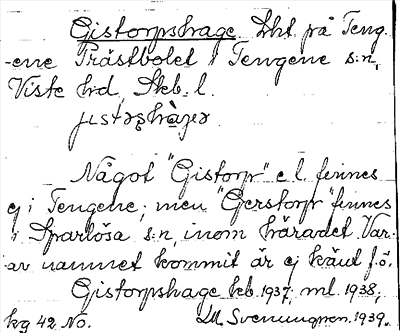 Gistorpshage. Lht på Teng-
-ene Prästbolet i Tengene s:n,
Viste hd, Skb. l.
Något "Gistorp" e l. finnes
ej i Tengene; men "Gerstorp" finnes
i Sparlösa s:n, inom häradet. Var-
av namnet kommit är ej känt f. ö.
Gistorpshage kb. 1937, ml. 1938,
kg 42 No. LM Svenungson. 1939.